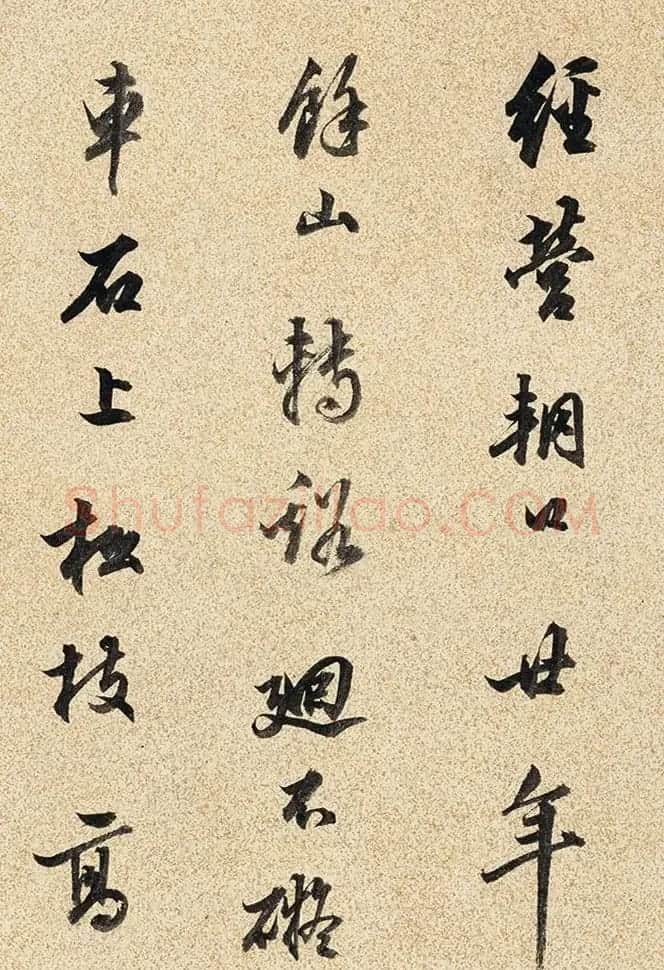 經營輞口廿年
餘山轉谿廻不礙
車石上松枝高
Shufaziliao.COM